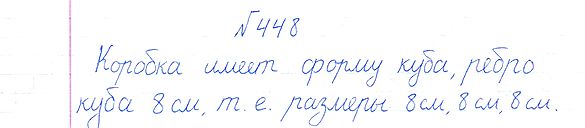 №448
Коробка имеет форму куба, ребро
куба 8 см, т. е. размеры 8 см, 8 см, 8 см.